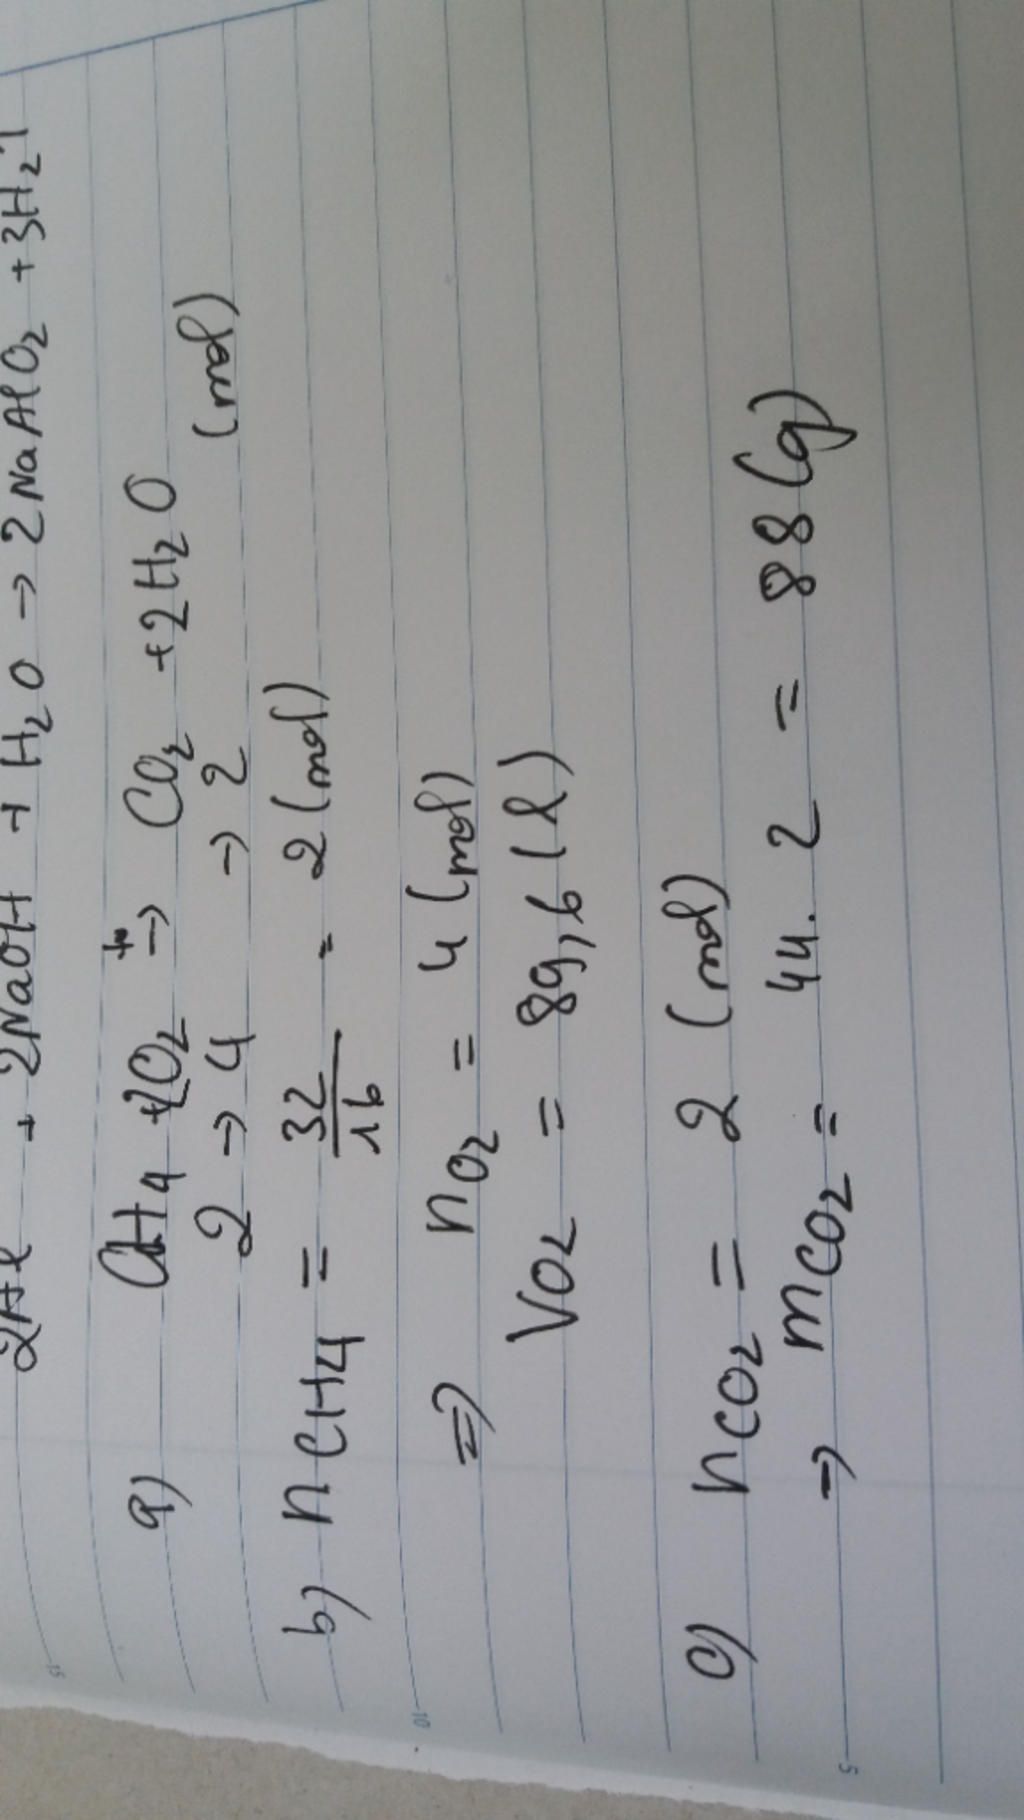 2Al + 2NaOH + H₂O → 2NaAlO₂ + 3H₂↑
a) CH₄ + 2O₂ →(t°) CO₂ + 2H₂O
2 → 4 → 2 (mol)
b) nCH₄ = 32/16 = 2 (mol)
=> nO₂ = 4 (mol)
VO₂ = 89,6 (l)
c) nCO₂ = 2 (mol)
→ mCO₂ = 44. 2 = 88 (g)
15
10
5